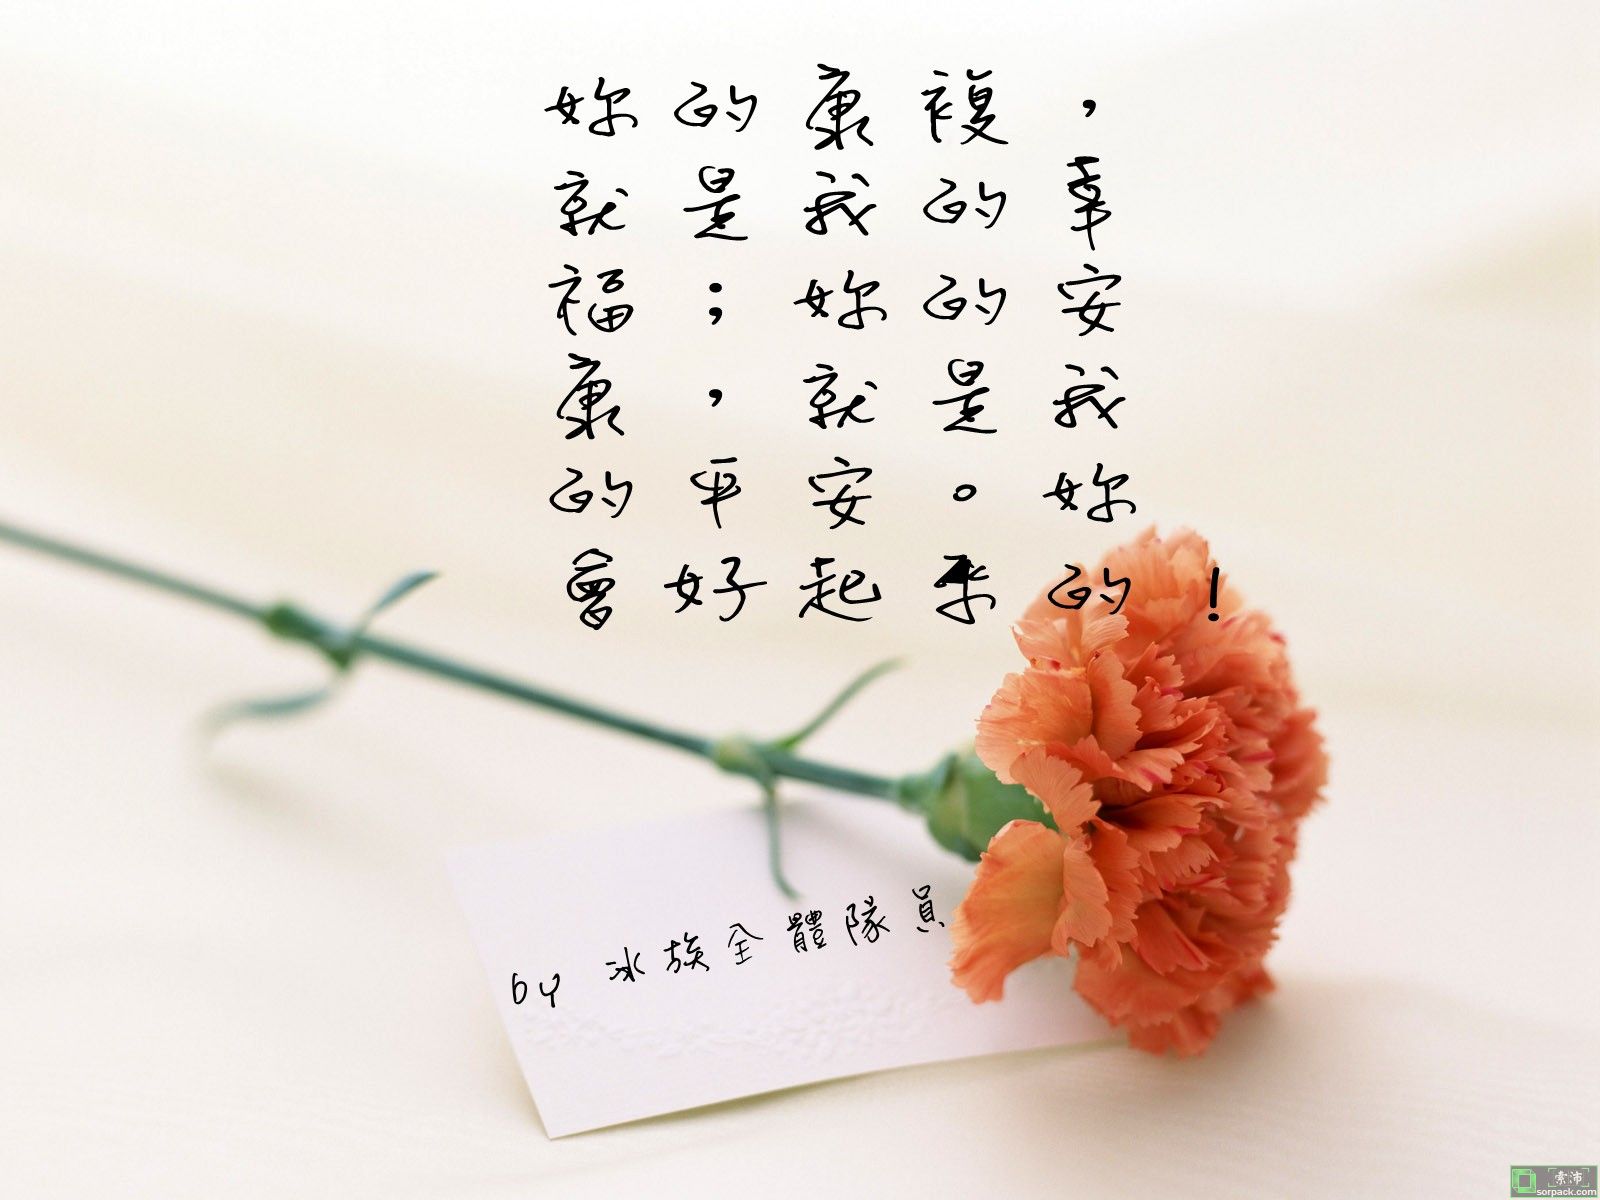 妳的康複，
就是我的幸
福；妳的安
康，就是我
的平安。妳
會好起來的！
by 冰族全體隊員
索沛
sorpack.com